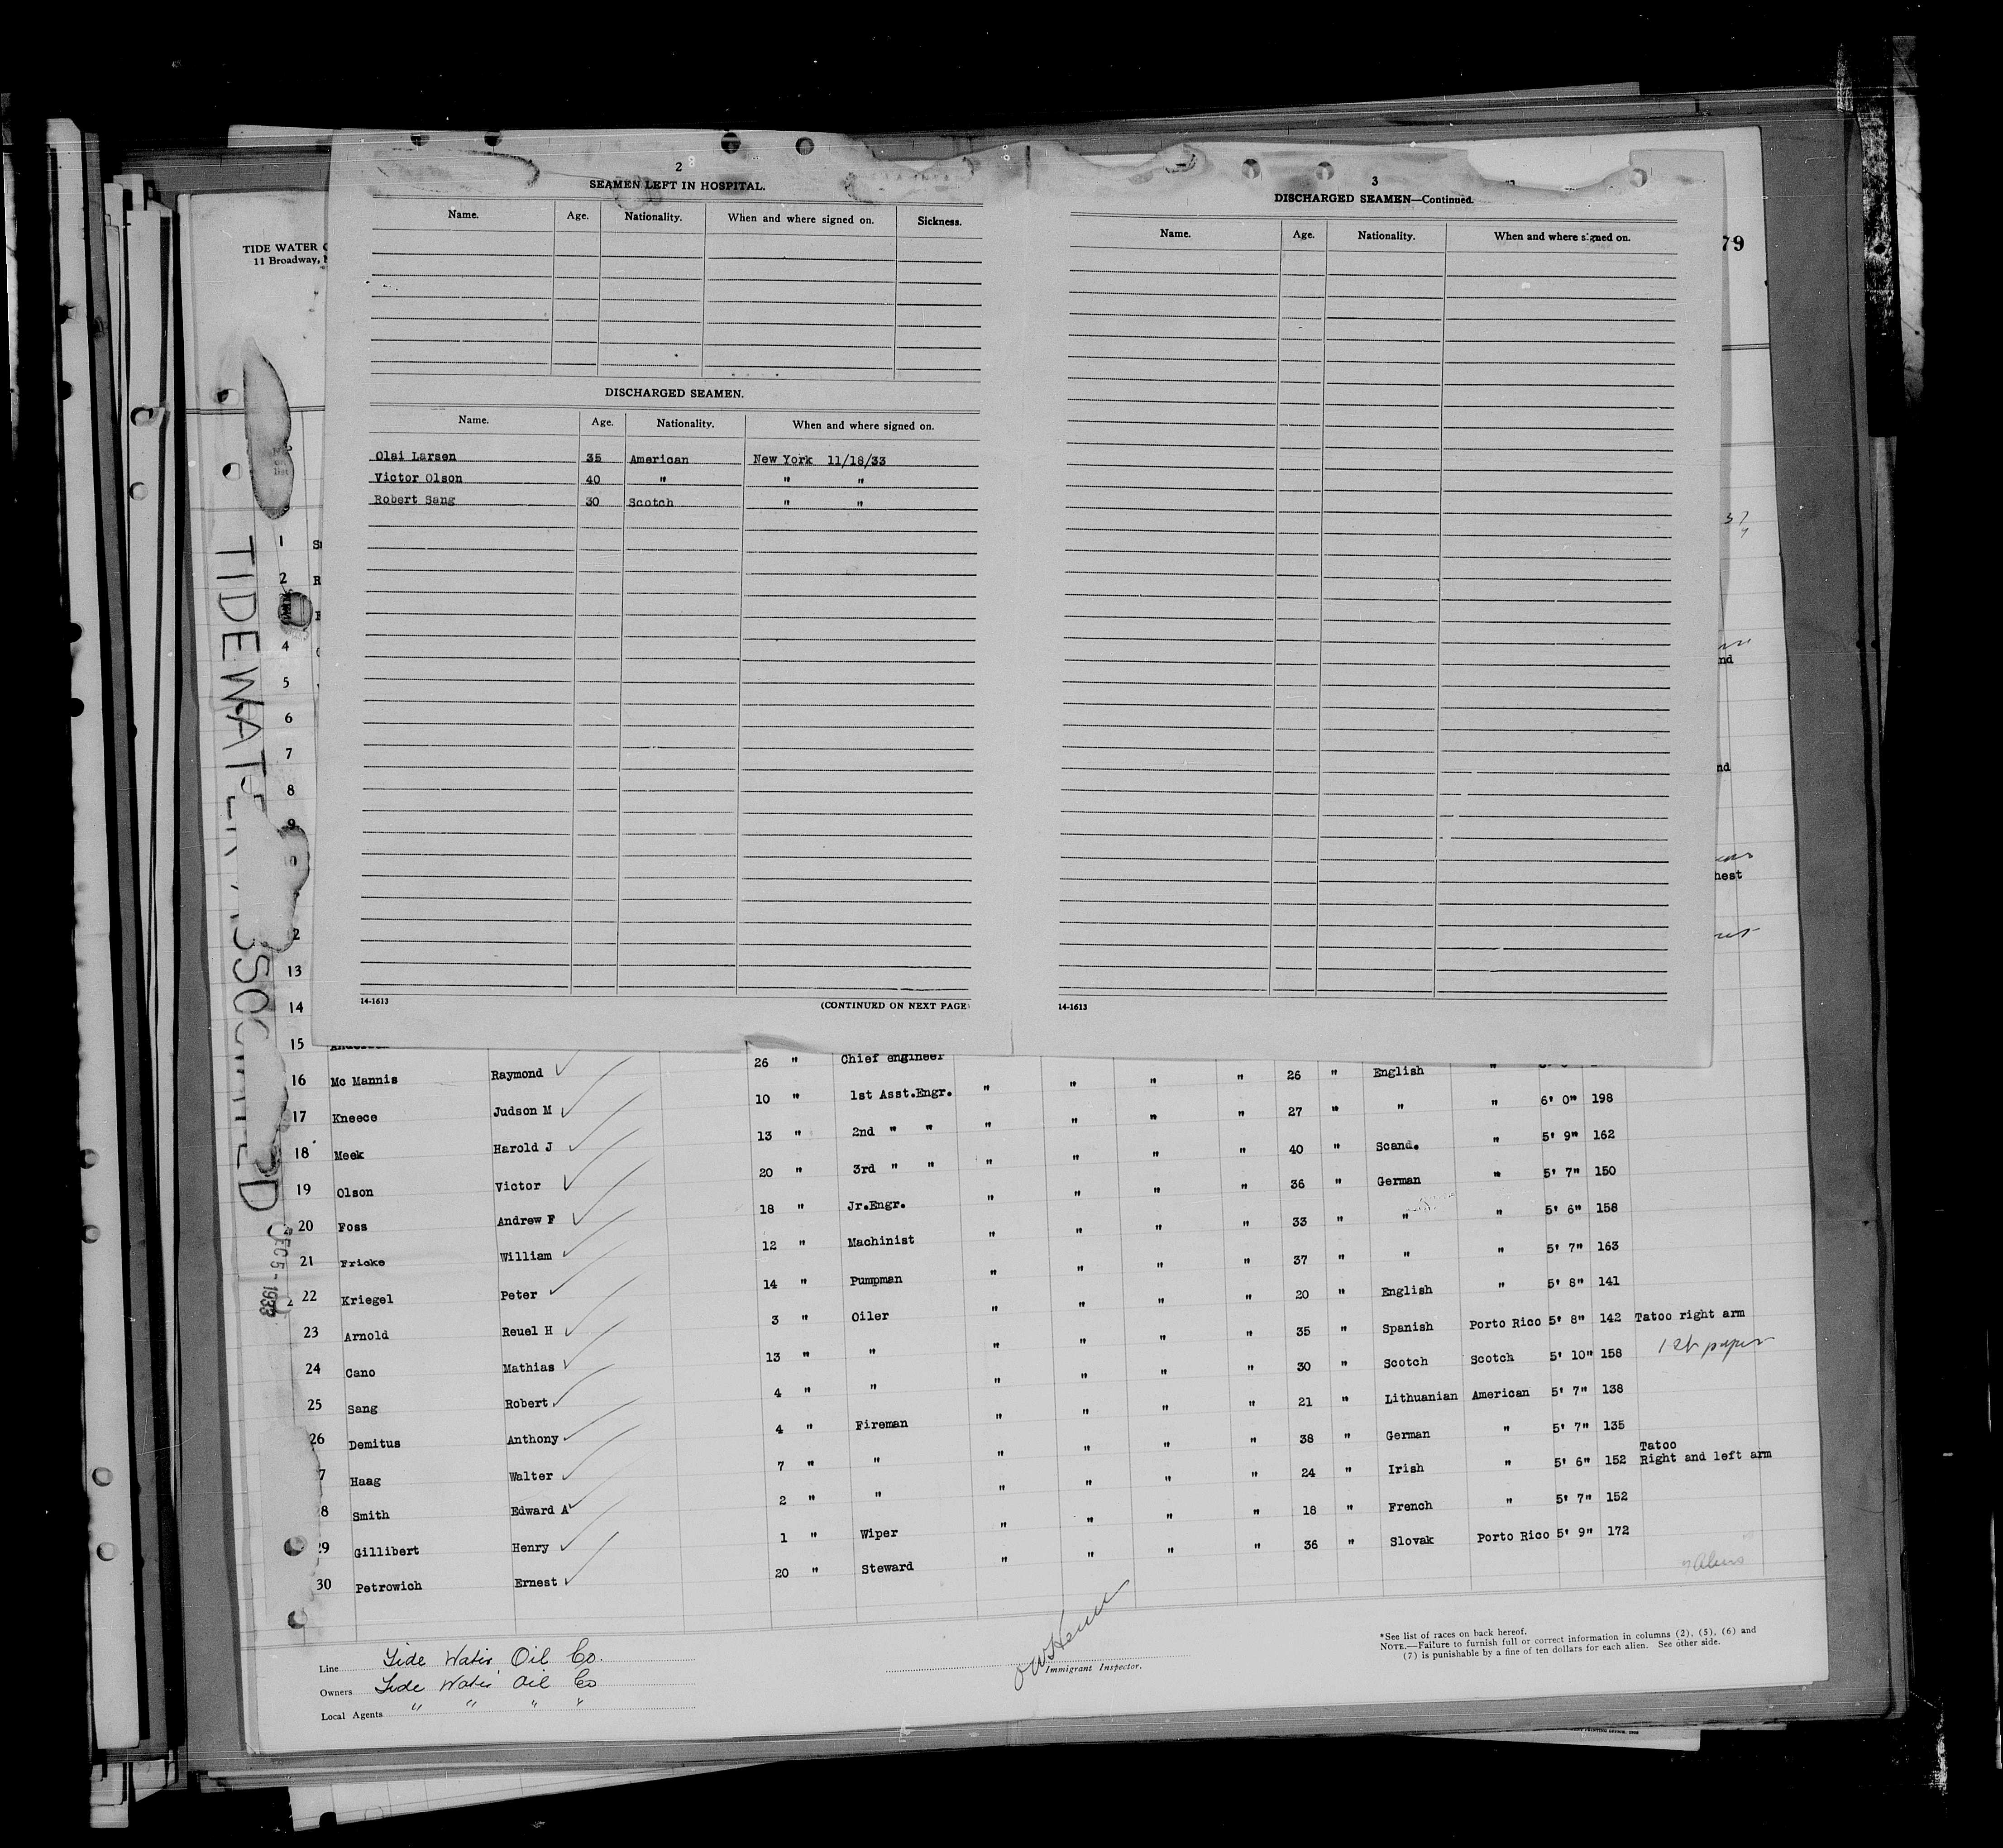 2
SEAMEN LEFT IN HOSPITAL.
Name. Age. Nationality. When and where signed on. Sickness.
DISCHARGED SEAMEN.
Name. Age. Nationality. When and where signed on.
Olai Larsen 35 American New York 11/18/33
Victor Olson 40 " " "
Robert Sang 30 Scotch " "
14-1613 (CONTINUED ON NEXT PAGE)
3
DISCHARGED SEAMEN—Continued.
Name. Age. Nationality. When and where signed on.
14-1613
TIDE WATER
11 Broadway,
79
TIDEWATER ASSOCIATED
DEC 5 - 1933
37
9
nd
nd
hest
1
2
4
5
6
7
8
9
13
14
15
16 Mc Mannis Raymond 26 " Chief engineer
17 Kneece Judson M 10 " 1st Asst.Engr. " " " " 26 " English "
18 Meek Harold J 13 " 2nd " " " " " " 27 " " " 6' 0" 198
19 Olson Victor 20 " 3rd " " " " " " 40 " Scand. " 5' 9" 162
20 Foss Andrew F 18 " Jr.Engr. " " " " 36 " German " 5' 7" 150
21 Fricke William 12 " Machinist " " " " 33 " " " 5' 6" 158
22 Kriegel Peter 14 " Pumpman " " " " 37 " " " 5' 7" 163
23 Arnold Reuel H 3 " Oiler " " " " 20 " English " 5' 8" 141
24 Cano Mathias 13 " " " " " " 35 " Spanish Porto Rico 5' 8" 142 Tatoo right arm
25 Sang Robert 4 " " " " " " 30 " Scotch Scotch 5' 10" 158 1st paper
26 Demitus Anthony 4 " Fireman " " " " 21 " Lithuanian American 5' 7" 138
7 Haag Walter 7 " " " " " " 38 " German " 5' 7" 135
8 Smith Edward A 2 " " " " " " 24 " Irish " 5' 6" 152 Tatoo Right and left arm
29 Gillibert Henry 1 " Wiper " " " " 18 " French " 5' 7" 152
30 Petrowich Ernest 20 " Steward " " " " 36 " Slovak Porto Rico 5' 9" 172
Line Tide Water Oil Co.
Owners Tide Water Oil Co
Local Agents " " " "
Immigrant Inspector.
*See list of races on back hereof.
NOTE.—Failure to furnish full or correct information in columns (2), (5), (6) and
(7) is punishable by a fine of ten dollars for each alien. See other side.